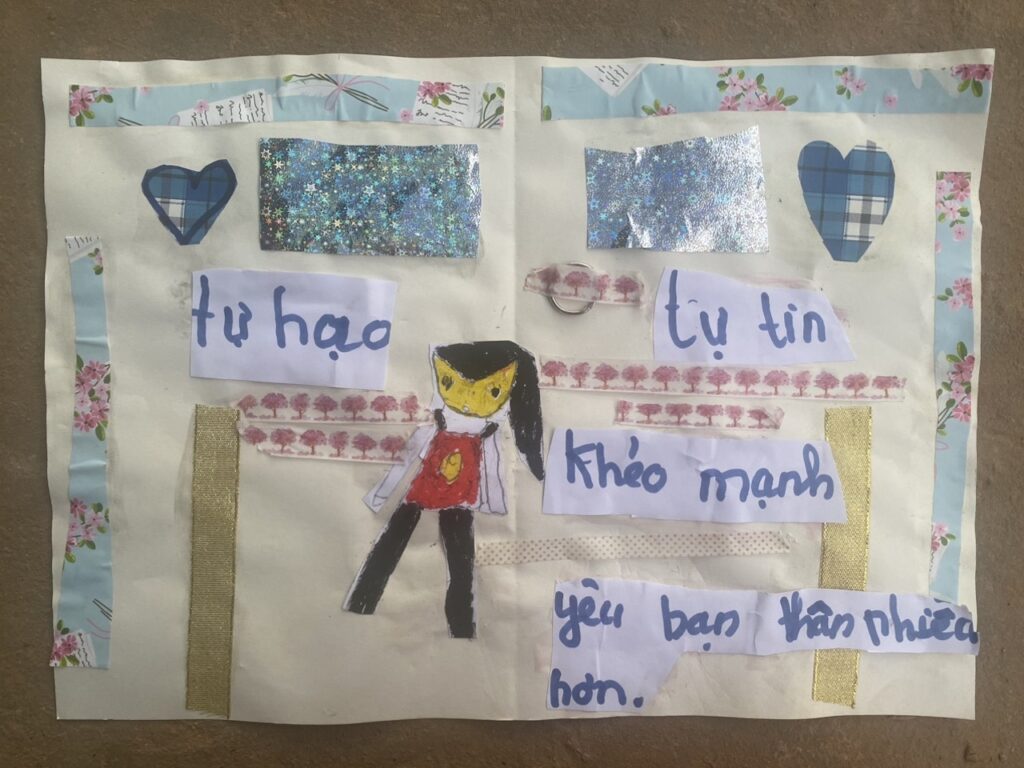 tự hạo
tự tin
khẻo mạnh
yêu bạn thân nhiều
hơn.